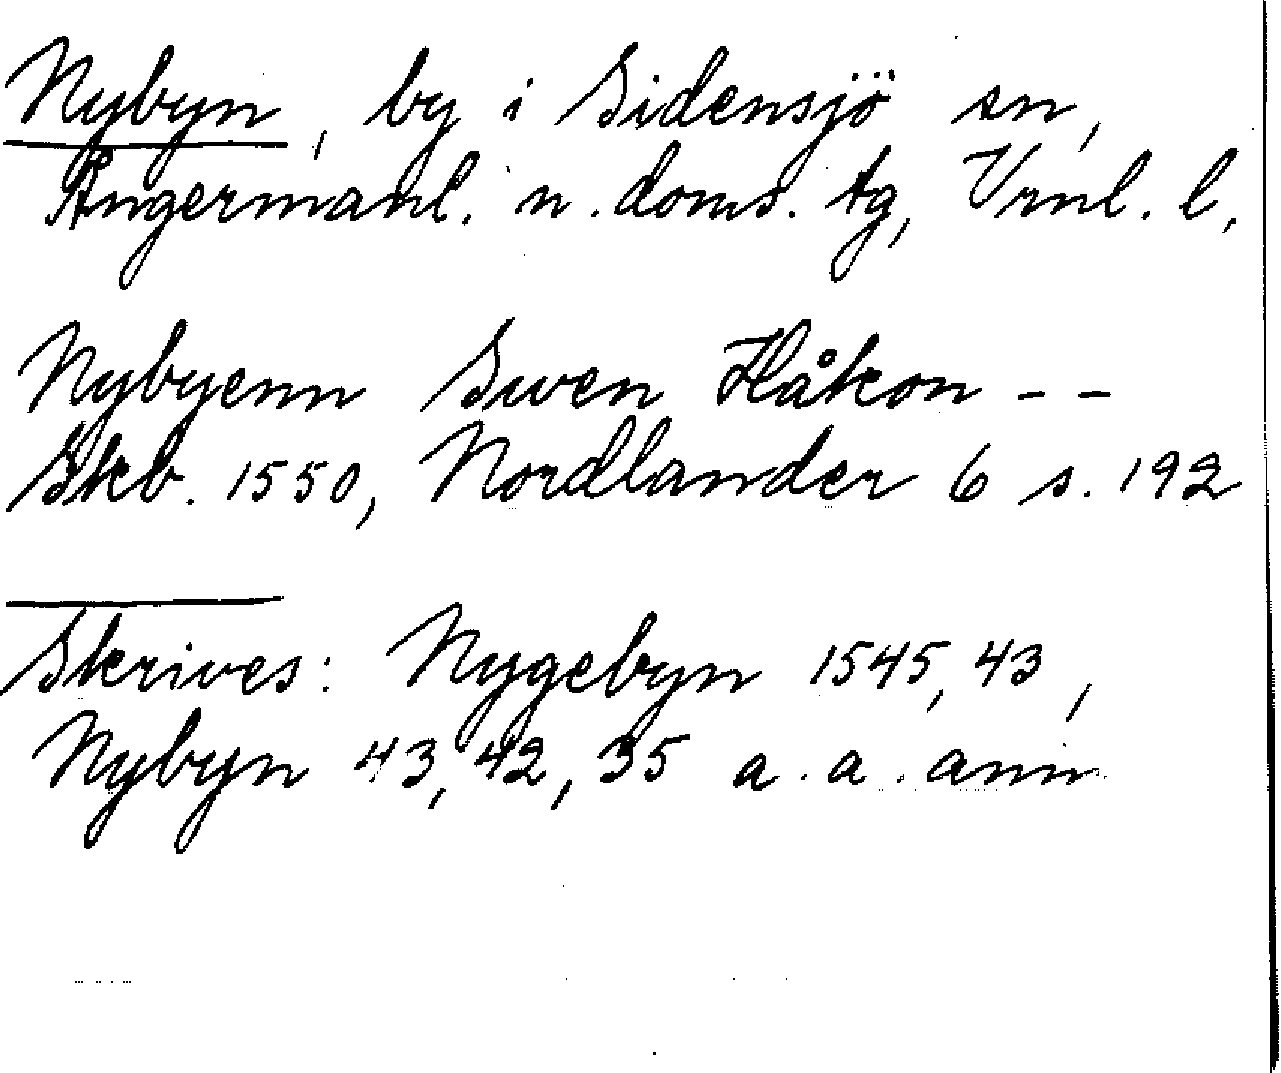 Nybyn, by i Sidensjö sn,
Ångermanl. n. doms. tg, Vrnl. l.
Nybyenn Swen Håkon - -
Skb. 1550, Nordlander 6 s. 192
Skrives: Nygebyn 1545, 43,
Nybyn 43, 42, 35 a. a. ann